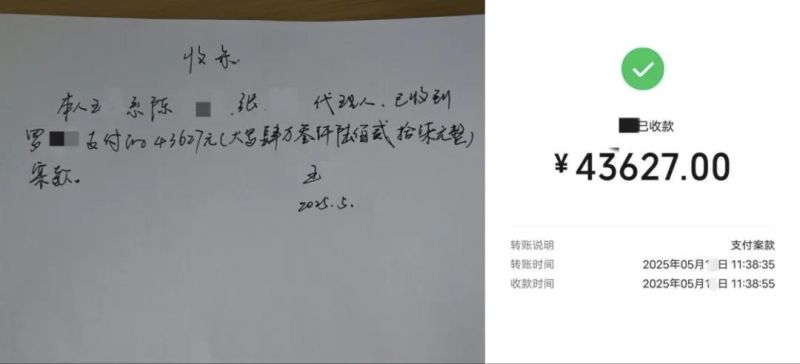 收条
本人王 系陈 张 代理人，已收到
罗 支付的43627元(大写肆万叁仟陆佰贰拾柒元整)
案款。
王
2025.5.
已收款
¥43627.00
转账说明 支付案款
转账时间 2025年05月1 日 11:38:35
收款时间 2025年05月1 日 11:38:55